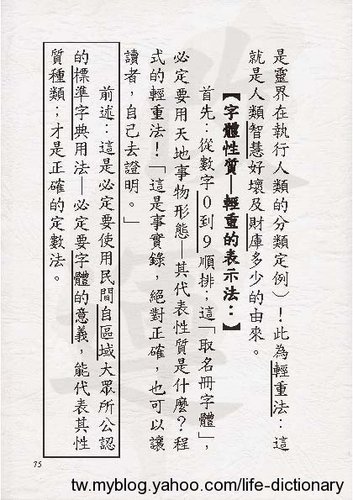 是靈界在執行人類的分類定例）！此為輕重法：這
就是人類智慧好壞及財庫多少的由來。
【字體性質—輕重的表示法：】
首先：從數字０到９順排；這「取名冊字體」，
必定要用天地事物形態——其代表性質是什麼？程
式的輕重法！「這是事實錄，絕對正確，也可以讓
讀者，自己去證明。」
前述：這是必定要使用民間自區域大眾所公認
的標準字典用法——必定要字體的意義，能代表其性
質種類；才是正確的定數法。
75
tw.myblog.yahoo.com/life-dictionary